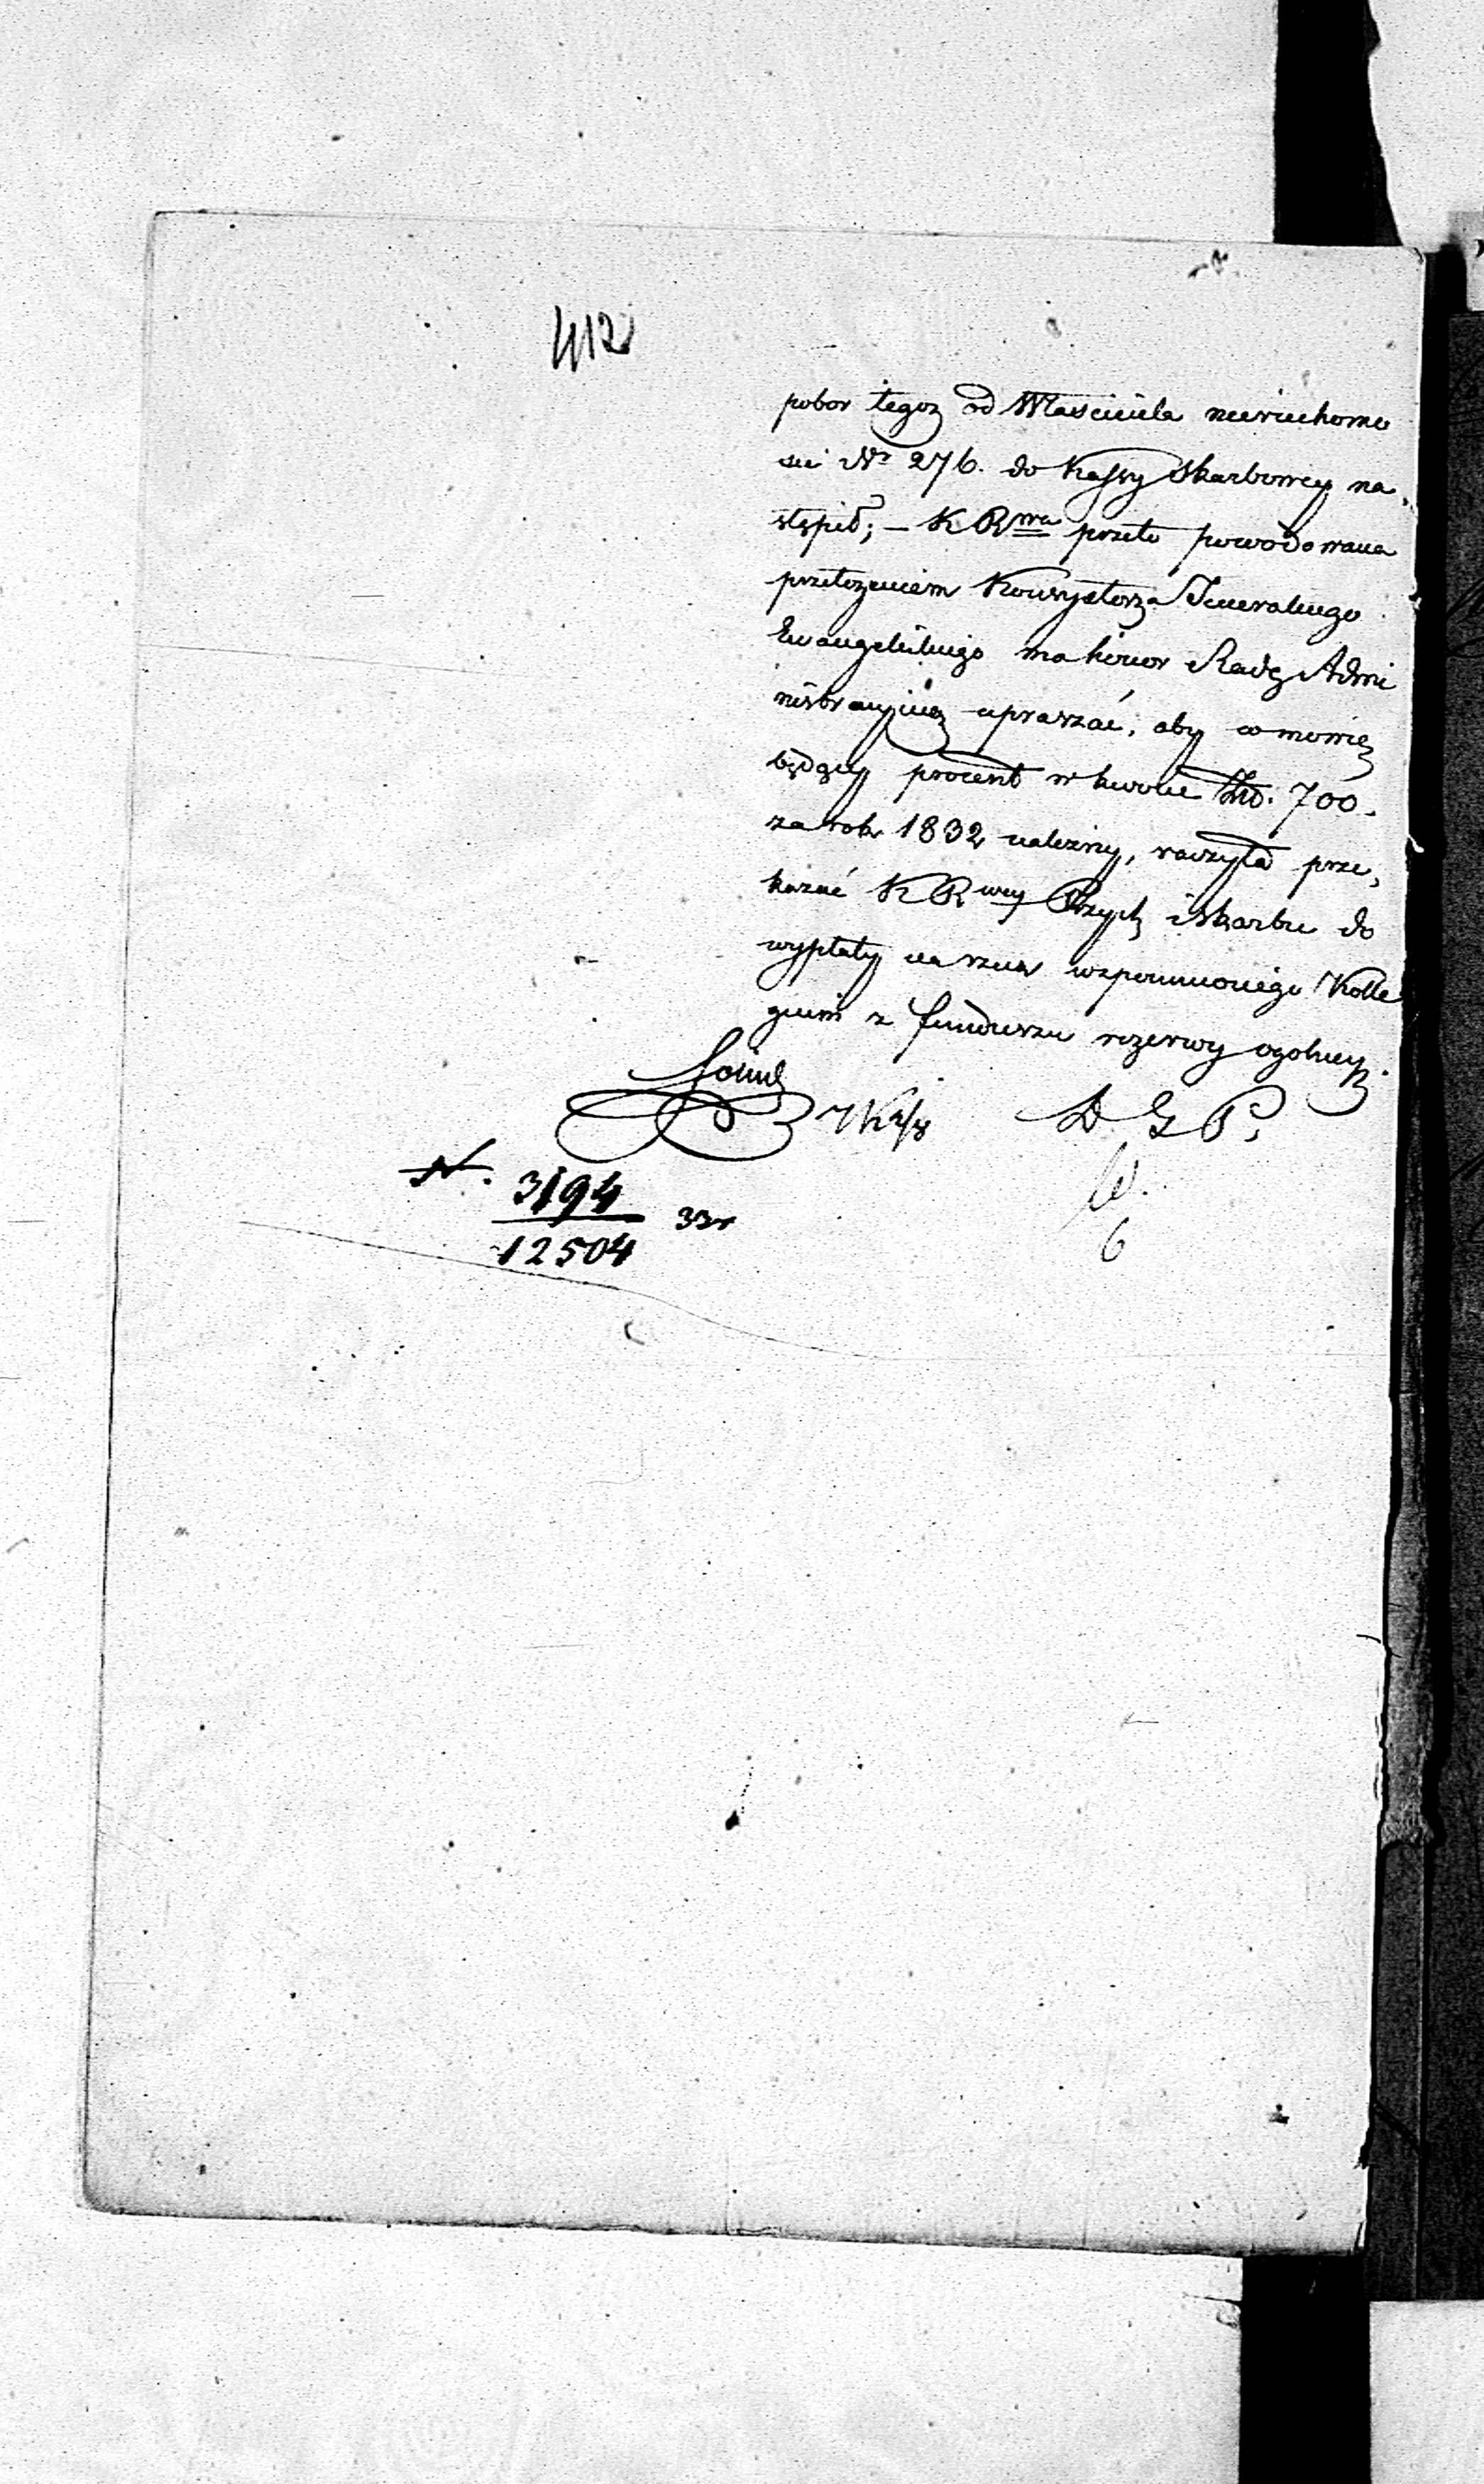 412
pobor tegoz od Właściciela nieruchomo
sci Nr 276. do Kassy Skarbowey na,
stąpił; – K R wa przeto powodowana
przełożeniem Konsystorza Jeneralnego
Ewangelickiego ma honor Radę Admi
nistracyiną upraszać, aby w mowie
będący procent w kwocie Złł. 700.
za rok 1832 należny, raczyła prze,
kazać K R wey Przych i Skarbu do
wypłaty na rzecz wspomnionego Kolle
gium z funduszu rezerwy ogolney
D G P.
W.
6
N. 3194 33r
12504